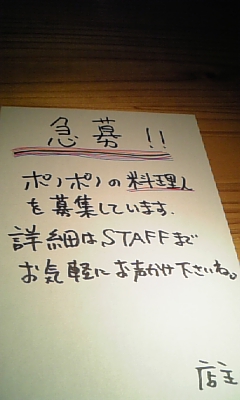 急募!!
ポノポノの料理人
を募集しています.
詳細はSTAFFまで
お気軽にお声かけ下さいね。
店主